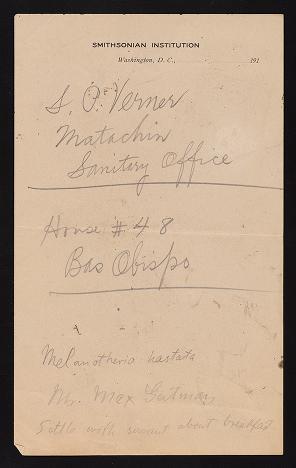 SMITHSONIAN INSTITUTION
Washington, D. C., 191
S. P. Verner
Matachin
Sanitary Office
House # 48
Bas Obispo
Melanotheria hastata
Mr. Max Gutman
Settle with servant about breakfast